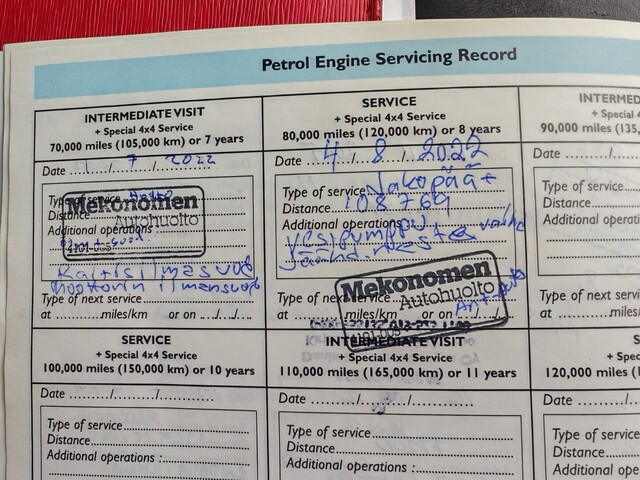 Petrol Engine Servicing Record
INTERMEDIATE VISIT
+ Special 4x4 Service
70,000 miles (105,000 km) or 7 years
Date 1 / 7 / 2022
Type of service
Distance
Additional operations
Mekonomen
Autohuolto
Raitisilmasuod
moottorin ilmansuod
Type of next service
at ......miles/km or on .../.../...
SERVICE
+ Special 4x4 Service
80,000 miles (120,000 km) or 8 years
Date 4 / 8 / 2022
Type of service Jakopää
Distance 108769
Additional operations
vesipumppu
jäähd.nesteen vaihd
Mekonomen
Autohuolto
Type of next service
at miles/km or on
INTERMED
+ Spe
90,000 miles (135,
Date
Type of service
Distance
Additional operations
Type of next servi
at ......miles/
SERVICE
+ Special 4x4 Service
100,000 miles (150,000 km) or 10 years
Date ....../....../......
Type of service
Distance
Additional operations :
INTERMEDIATE VISIT
+ Special 4x4 Service
110,000 miles (165,000 km) or 11 years
Date ....../....../......
Type of service
Distance
Additional operations :
S
+ Spe
120,000 miles (1
Date
Type of service
Distance
Additional operations